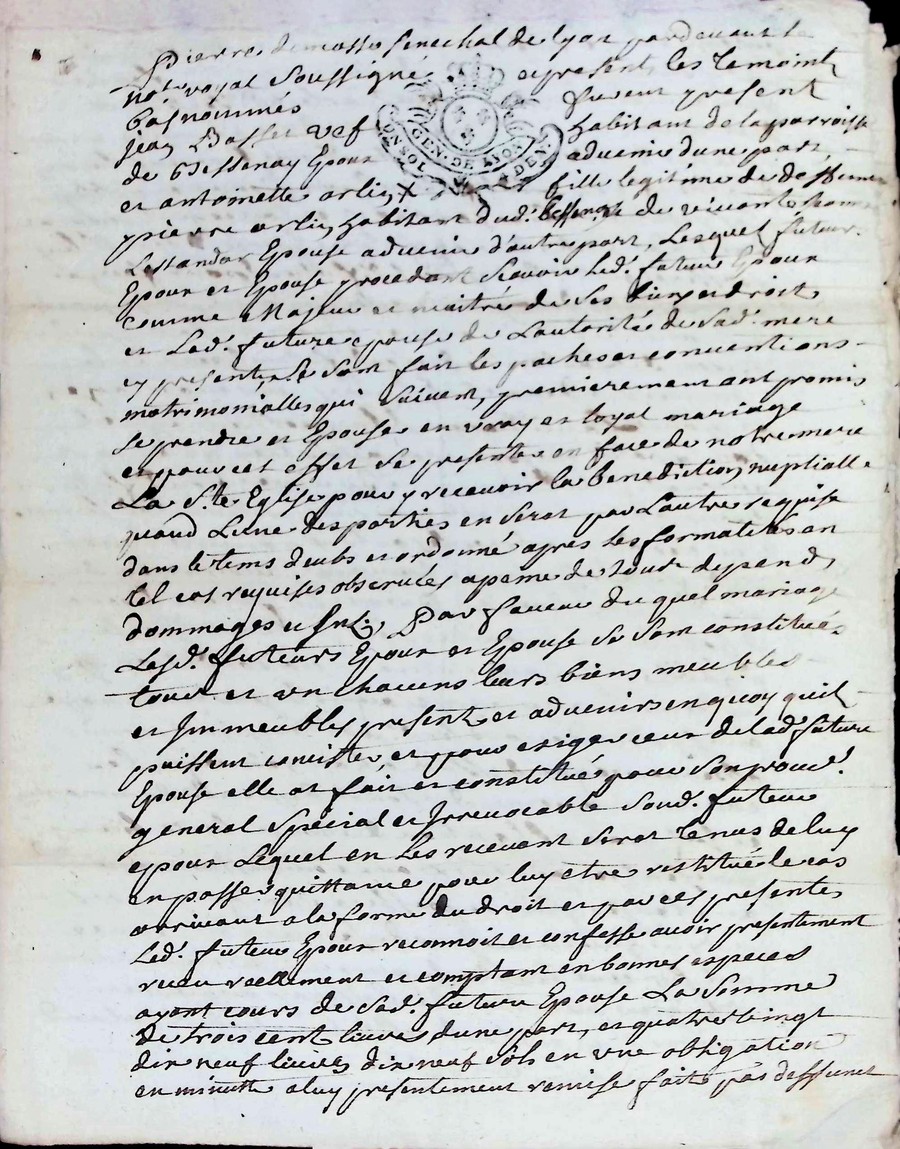 Pierre demasso senechal de lyon pardevant le
not.re royal soussigné et present les temoint
bas nommés furent present
jean Basset vef habitant de la parroisse
de Bessenay Epour advenir dune part
et antoinette arlin fille legitime de deffunct
pierre arlin habitant dud. bessenay et de vivante
Lestandar Epouse advenir d'autre part, Lesquels futur
Epour et Epouse procedant scavoir led. futur Epour
comme Majeur et maitre de ses biens et droit
et Lad. future epouse de Lautorité de Sad. mere
cy present, Se sont fait les paches et conventions
matrimonialles qui suivent, premierement ont promis
se prendre et Epouser en vray et loyal mariage
et pour cet effet se presenter en face de notre mere
La Ste Eglise pour y recevoir la benediction nuptialle
quand Lune des parties en serat par Lautre requise
dans le tems deubs et ordonné apres les formalites en
tel cas requises observées a peine de tous depend
dommages et Int. Par faveur du quel mariage
Lesd. futeurs Epour et Epouse se sont constitués
tous et un chacuns leurs biens meubles
et Immeubles present et advenirs en quoy quil
puissent consister, et pour exiger ceux de lad. future
Epouse elle at fait et constitué pour son procu.
general special et Irrevocable sond. futur
epour Lequel en les recevant serat tenus de luy
en passer quittance pour luy etre restitué le cas
arrivant a la forme du droit et par ces presentes
Led. futeur Epour reconnoit et confesse avoir presentement
receu reellement et comptant en bonnes especes
ayant cours de Sad. future Epouse La Somme
de trois cent livres dune part, et quatre vingt
dix neuf livres dix neuf sols en une obligation
en minutte a luy presentement remise faitte par deffunct
GEN. DE LYON